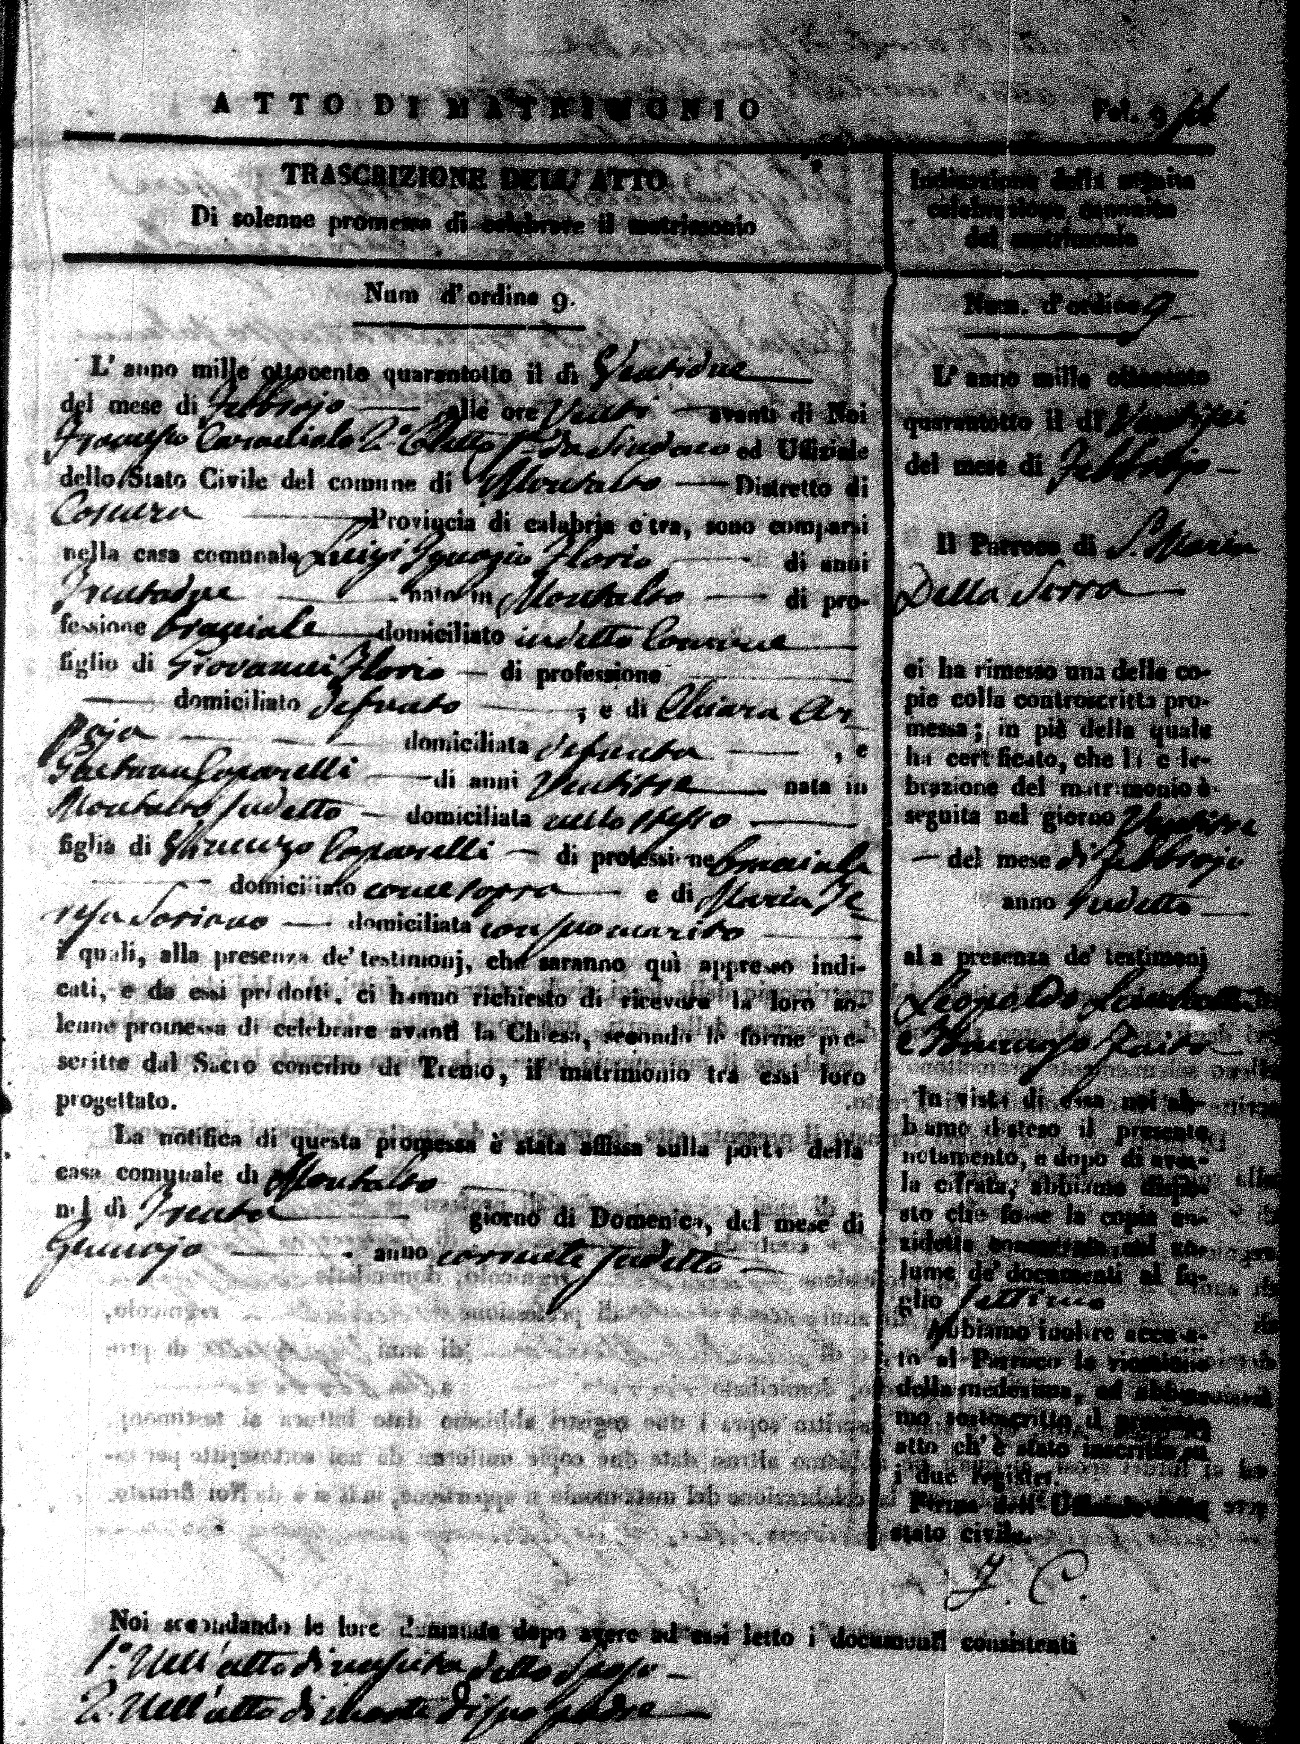 ATTO DI MATRIMONIO
Fol. 9
TRASCRIZIONE DELL' ATTO
Di solenne promessa di celebrare il matrimonio
Num d'ordine 9.
L' anno mille ottocento quarantotto il dì Ventidue
del mese di Febbrajo alle ore Venti avanti di Noi
Francesco ed Uffiziale
dello Stato Civile del comune di Montalto Distretto di
Cosenza Provincia di calabria citra, sono comparsi
nella casa comunale Luigi Ignazio Florio di anni
Trentadue nato in Montalto di pro-
fessione bracciale domiciliato in detto Comune
figlio di Giovanni Florio di professione
domiciliato defunto , e di Chiara Ar
domiciliata defunta , e
Gaetana Caparelli di anni Ventitre nata in
Montalto sudetto domiciliata nello stesso
figlia di Vincenzo Caparelli di professione bracciale
domiciliato come sopra e di Maria Te
resa Soriano domiciliata con suo marito
i quali, alla presenza de' testimonj, che saranno quì appresso indi-
cati, e da essi prodotti, ci hanno richiesto di ricevere la loro so-
lenne promessa di celebrare avanti la Chiesa, secondo le forme pre-
scritte dal Sacro concilio di Trento, il matrimonio tra essi loro
progettato.
La notifica di questa promessa è stata affissa sulla porta della
casa comunale di Montalto
nel dì Trenta giorno di Domenica, del mese di
Gennajo anno corrente sudetto
Indicazione della seguita
celebrazione canonica
del matrimonio
Num. d'ordine 9
L' anno mille ottocento
quarantotto il dì Ventisei
del mese di Febbrajo
Il Parroco di S. Maria
Della Serra
ci ha rimesso una delle co-
pie colla controscritta pro-
messa; in piè della quale
ha certificato, che la cele-
brazione del matrimonio è
seguita nel giorno Ventitre
del mese di Febbrajo
anno sudetto
alla presenza de' testimonj
Leopoldo
e Francesco
In vista di essa noi ab-
biamo disteso il presente
notamento, e dopo di aver-
la cifrata, abbiamo dispo-
sto che fosse la copia an-
zidetta conservata nel vo-
lume de' documenti al fo-
glio settimo
Abbiamo inoltre accusa-
to al Parroco la ricezione
della medesima, ed abbia-
mo sottoscritto il presente
atto ch' è stato inscritto su
i due registri
Firma dell' Uffiziale dello
stato civile.
F. C.
Noi secondando le loro domande dopo avere ad essi letto i documenti consistenti
1.° Nell' atto di nascita dello Sposo
2. Nell' atto di morte di suo padre